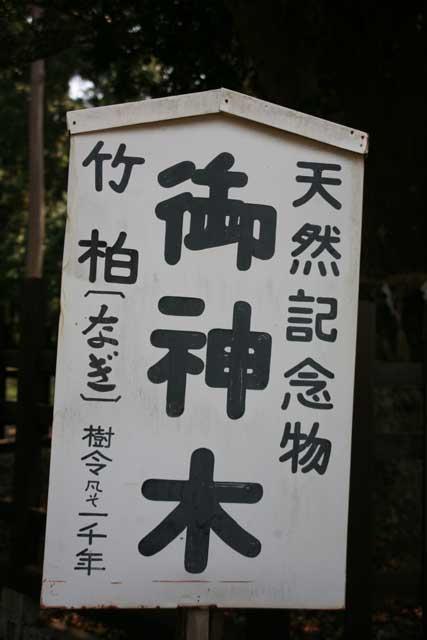 天然記念物
御神木
竹柏〔なぎ〕樹令凡そ一千年